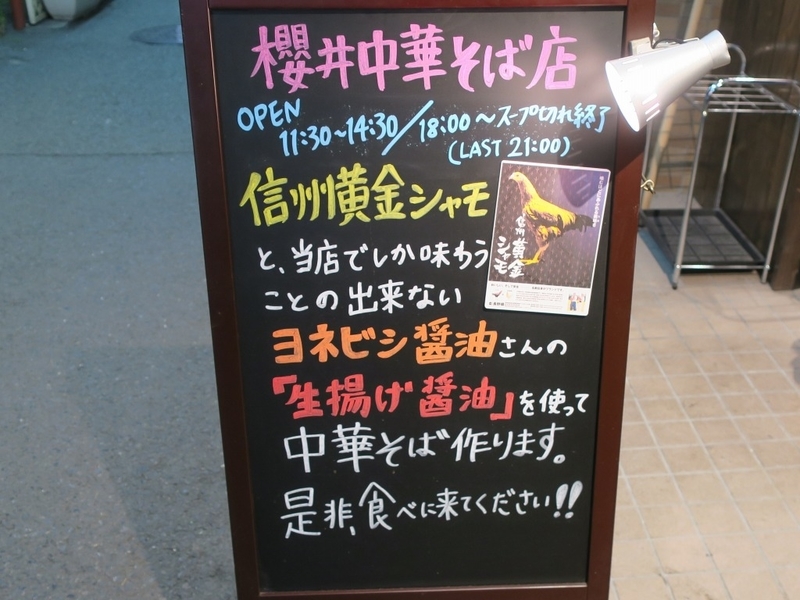 櫻井中華そば店
OPEN
11:30~14:30/18:00~スープ切れ終了
(LAST 21:00)
信州黄金シャモ
と、当店でしか味わう
ことの出来ない
ヨネビシ醤油さんの
「生揚げ醤油」を使って
中華そば作ります。
是非、食べに来てください!!
信州
黄金
シャモ